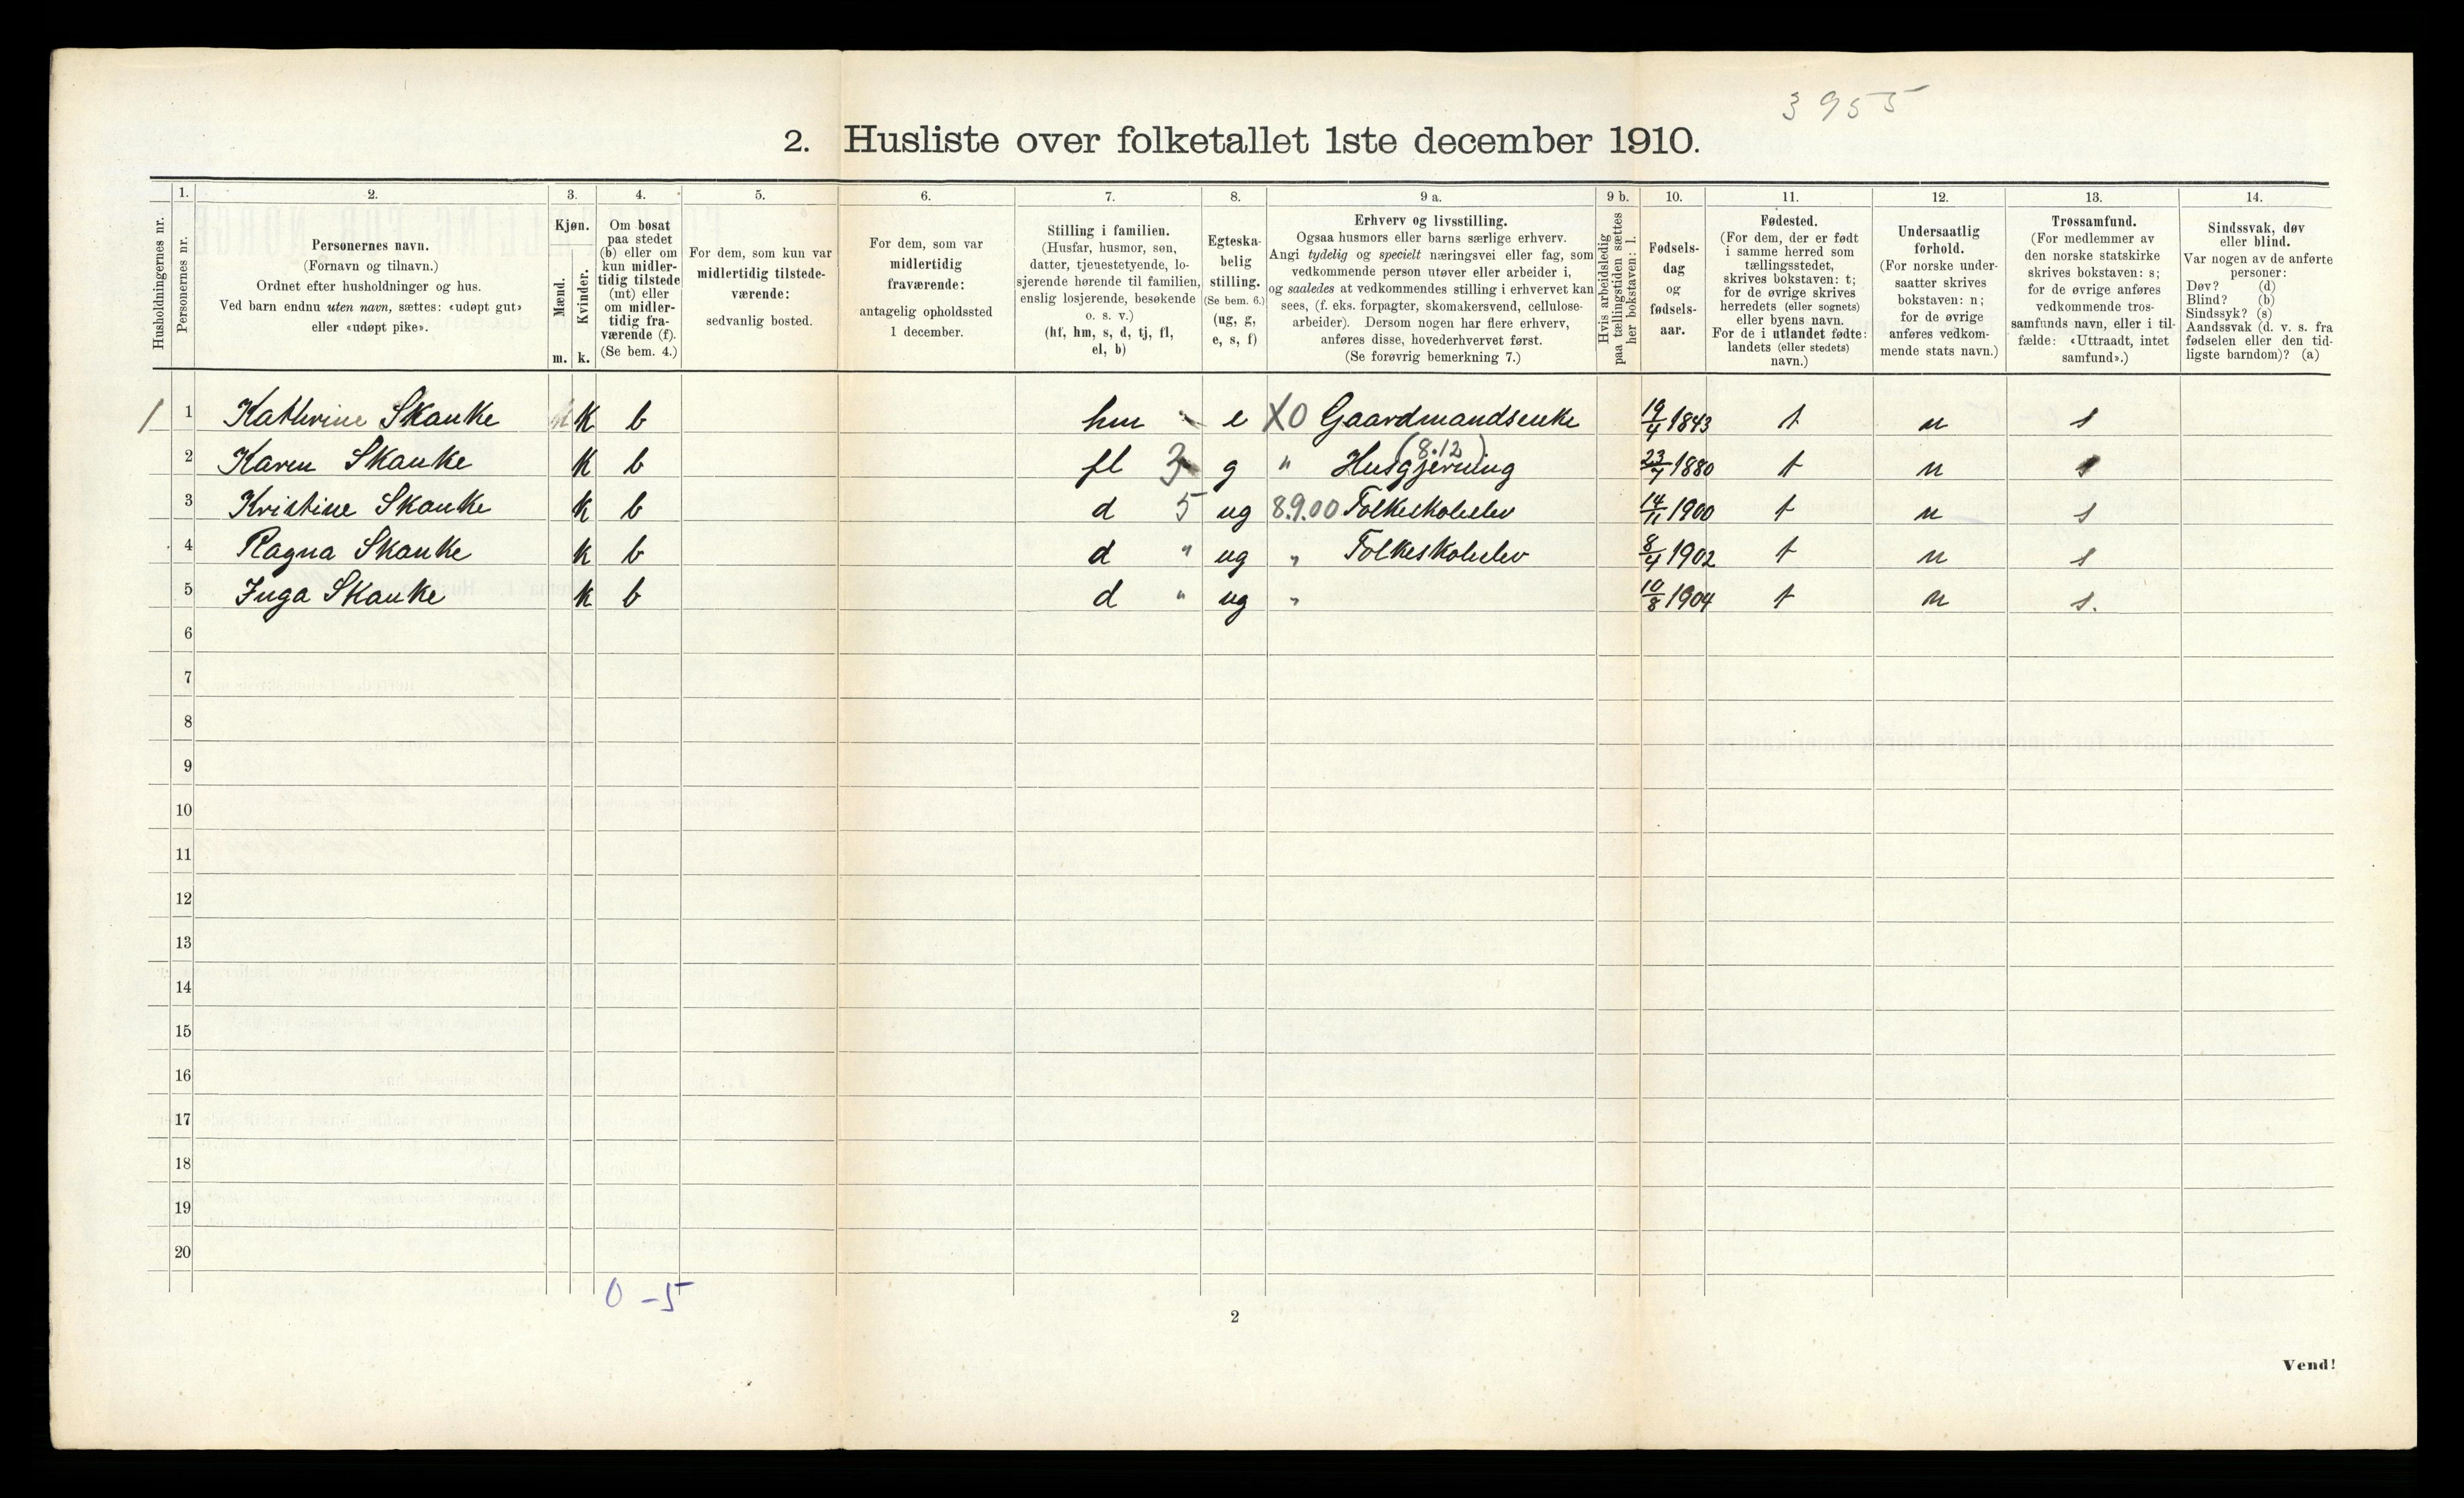 3955
2. Husliste over folketallet 1ste december 1910.
Husholdningernes nr.
1.
Personernes nr.
2.
Personernes navn.
(Fornavn og tilnavn.)
Ordnet efter husholdninger og hus.
Ved barn endnu uten navn, sættes: «udøpt gut»
eller «udøpt pike».
3.
Kjøn.
Mænd.
Kvinder.
m. k.
4.
Om bosat
paa stedet
(b) eller om
kun midler-
tidig tilstede
(mt) eller
om midler-
tidig fra-
værende (f).
(Se bem. 4.)
5.
For dem, som kun var
midlertidig tilstede-
værende:
sedvanlig bosted.
6.
For dem, som var
midlertidig
fraværende:
antagelig opholdssted
1 december.
7.
Stilling i familien.
(Husfar, husmor, søn,
datter, tjenestetyende, lo-
sjerende hørende til familien,
enslig losjerende, besøkende
o. s. v.)
(hf, hm, s, d, tj, fl,
el, b)
8.
Egteska-
belig
stilling.
(Se bem. 6.)
(ug, g,
e, s, f)
9 a.
Erhverv og livsstilling.
Ogsaa husmors eller barns særlige erhverv.
Angi tydelig og specielt næringsvei eller fag, som
vedkommende person utøver eller arbeider i,
og saaledes at vedkommendes stilling i erhvervet kan
sees, (f. eks. forpagter, skomakersvend, cellulose-
arbeider). Dersom nogen har flere erhverv,
anføres disse, hovederhvervet først.
(Se forøvrig bemerkning 7.)
9 b.
Hvis arbeidsledig
paa tællingstiden sættes
her bokstaven: l.
10.
Fødsels-
dag
og
fødsels-
aar.
11.
Fødested.
(For dem, der er født
i samme herred som
tællingsstedet,
skrives bokstaven: t;
for de øvrige skrives
herredets (eller sognets)
eller byens navn.
For de i utlandet fødte:
landets (eller stedets)
navn.)
12.
Undersaatlig
forhold.
(For norske under-
saatter skrives
bokstaven: n;
for de øvrige
anføres vedkom-
mende stats navn.)
13.
Trossamfund.
(For medlemmer av
den norske statskirke
skrives bokstaven: s;
for de øvrige anføres
vedkommende tros-
samfunds navn, eller i til-
fælde: «Uttraadt, intet
samfund».)
14.
Sindssvak, døv
eller blind.
Var nogen av de anførte
personer:
Døv? (d)
Blind? (b)
Sindssyk? (s)
Aandssvak (d. v. s. fra
fødselen eller den tid-
ligste barndom)? (a)
1 1 Kathrine Skanke k b hm e X0 Gaardmandsenke 19/4 1843 t n s
(8.12)
2 Karen Skanke k b fl 3 g " Husgjerning 23/7 1880 t n s
3 Kristine Skanke k b d 5 ug 8.9.00 Folkeskoleelev 14/11 1900 t n s
4 Ragna Skanke k b d " ug " Folkeskoleelev 8/4 1902 t n s
5 Inga Skanke k b d " ug " 10/8 1904 t n s.
6
7
8
9
10
11
12
13
14
15
16
17
18
19
20
0 - 5
2
Vend!